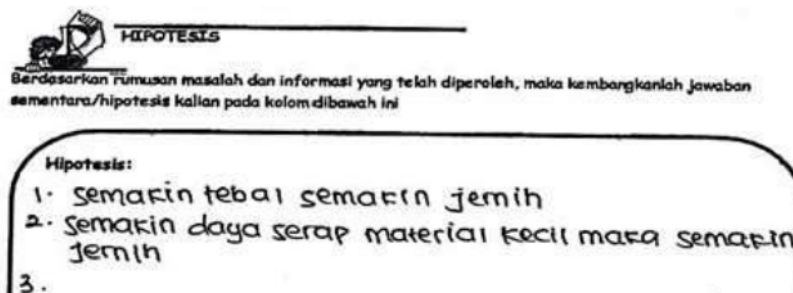 HIPOTESIS
Berdasarkan rumusan masalah dan informasi yang telah diperoleh, maka kembangkanlah jawaban
sementara/hipotesis kalian pada kolom dibawah ini
Hipotesis:
1. semakin tebal semakin jernih
2. semakin daya serap material kecil maka semakin
jernih
3.